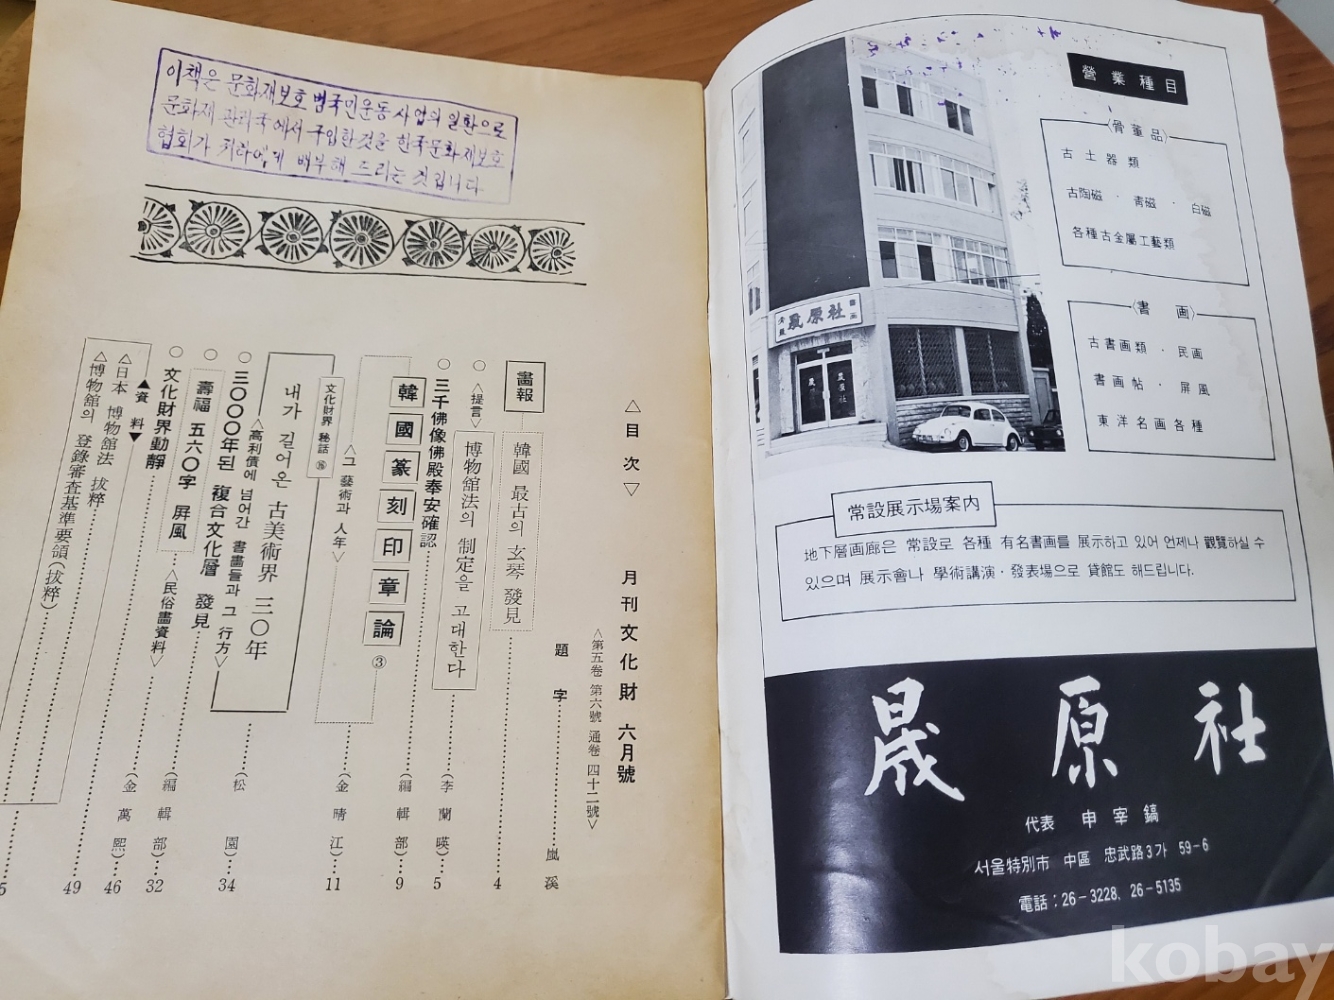 이책은 문화재보호 범국민운동 사업의 일환으로
문화재 관리국에서 구입한것을 한국문화재보호
협회가 귀하에게 배부해 드리는 것입니다
△目次▽
月刊 文化財 六月號
△第五卷 第六號 通卷 四十二號▽
題字 嵐溪
畵報 韓國 最古의 玄琴 發見 4
○ △提言▽ 博物舘法의 制定을 고대한다 (李蘭暎) 5
○ 三千佛像佛殿奉安確認 (編輯部) 9
韓國篆刻印章論 ③
△그 藝術과 人年▽ (金晴江) 11
文化財界 秘話 ⑯
내가 걸어온 古美術界 三○年
△高利債에 넘어간 書畵들과 그 行方▽ (松園) 34
○ 三○○○年된 複合文化層 發見
○ 壽福 五六○字 屏風 △民俗畵資料▽ (編輯部) 32
○ 文化財界動靜 (金萬熙) 46
▲資料▼
△日本 博物舘法 拔粹 49
△博物舘의 登錄審査基準要領(拔粹) 5
營業種目
〈骨董品〉
古土器類
古陶磁 · 靑磁 · 白磁
各種古金屬工藝類
〈書画〉
古書画類 · 民画
書画帖 · 屏風
東洋名画各種
晟原社
晟 原社
常設展示場案內
地下層画廊은 常設로 各種 有名書画를 展示하고 있어 언제나 觀覽하실 수
있으며 展示會나 學術講演 · 發表場으로 貸館도 해드립니다.
晟原社
代表 申宰鎬
서울特別市 中區 忠武路3가 59-6
電話 : 26-3228、26-5135
kobay